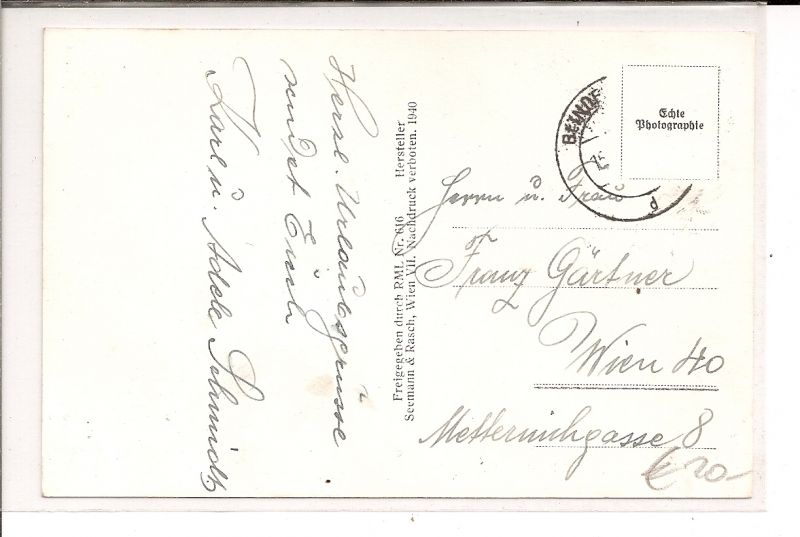 Herzl. Urlaubsgrüsse
sendet Euch
Karl u. Adele Schmidt
Freigegeben durch RML Nr. 616 Hersteller
Seemann & Rasch, Wien VII. Nachdruck verboten. 1940
Echte
Photographie
Herrn u. Frau
Franz Gärtner
Wien 40
Metternichgasse 8
€ 20-